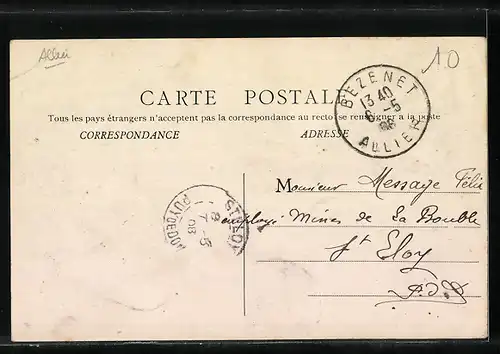 Allier
10
CARTE POSTALE
Tous les pays étrangers n'acceptent pas la correspondance au recto se renseigner a la poste
CORRESPONDANCE ADRESSE
BEZENET
13 40
6 -5
08
ALLIER
Monsieur Message Félix
employé Mines de La Bouble
St Eloy
P.d.D
ST ELOY
8
7 -5
08
PUY DE DOME